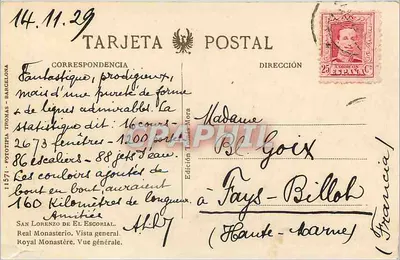 14.11.29
TARJETA POSTAL
CORRESPONDENCIA
DIRECCIÓN
Fantastique, prodigieux,
mais d'une pureté de forme
& de lignes admirables. La
statistique dit: 16 cours -
2673 fenêtres - 1200 portes
86 escaliers - 88 jets d'eau.
Ces couloirs ajoutés de
bout en bout auraient
160 kilomètres de longueur.
Amitiés
SAN LORENZO DE EL ESCORIAL.
Real Monasterio. Vista general
Royal Monastère. Vue générale.
11571 - FOTOTIPIA THOMAS - BARCELONA
Mora
ESPAÑA
Madame
B. Goix
à Fays-Billot
(Haute-Marne)
(Francia)